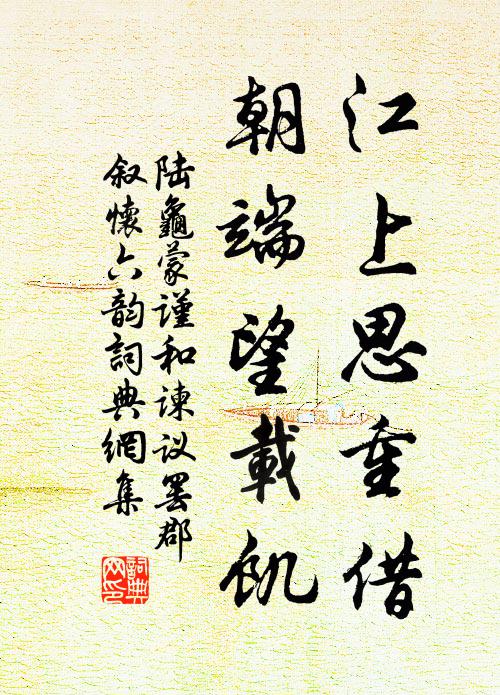 江上思重借
朝端望載飢
陆龜蒙谨和諫议罢郡
叙懷六韵詞典網集
詞典网印